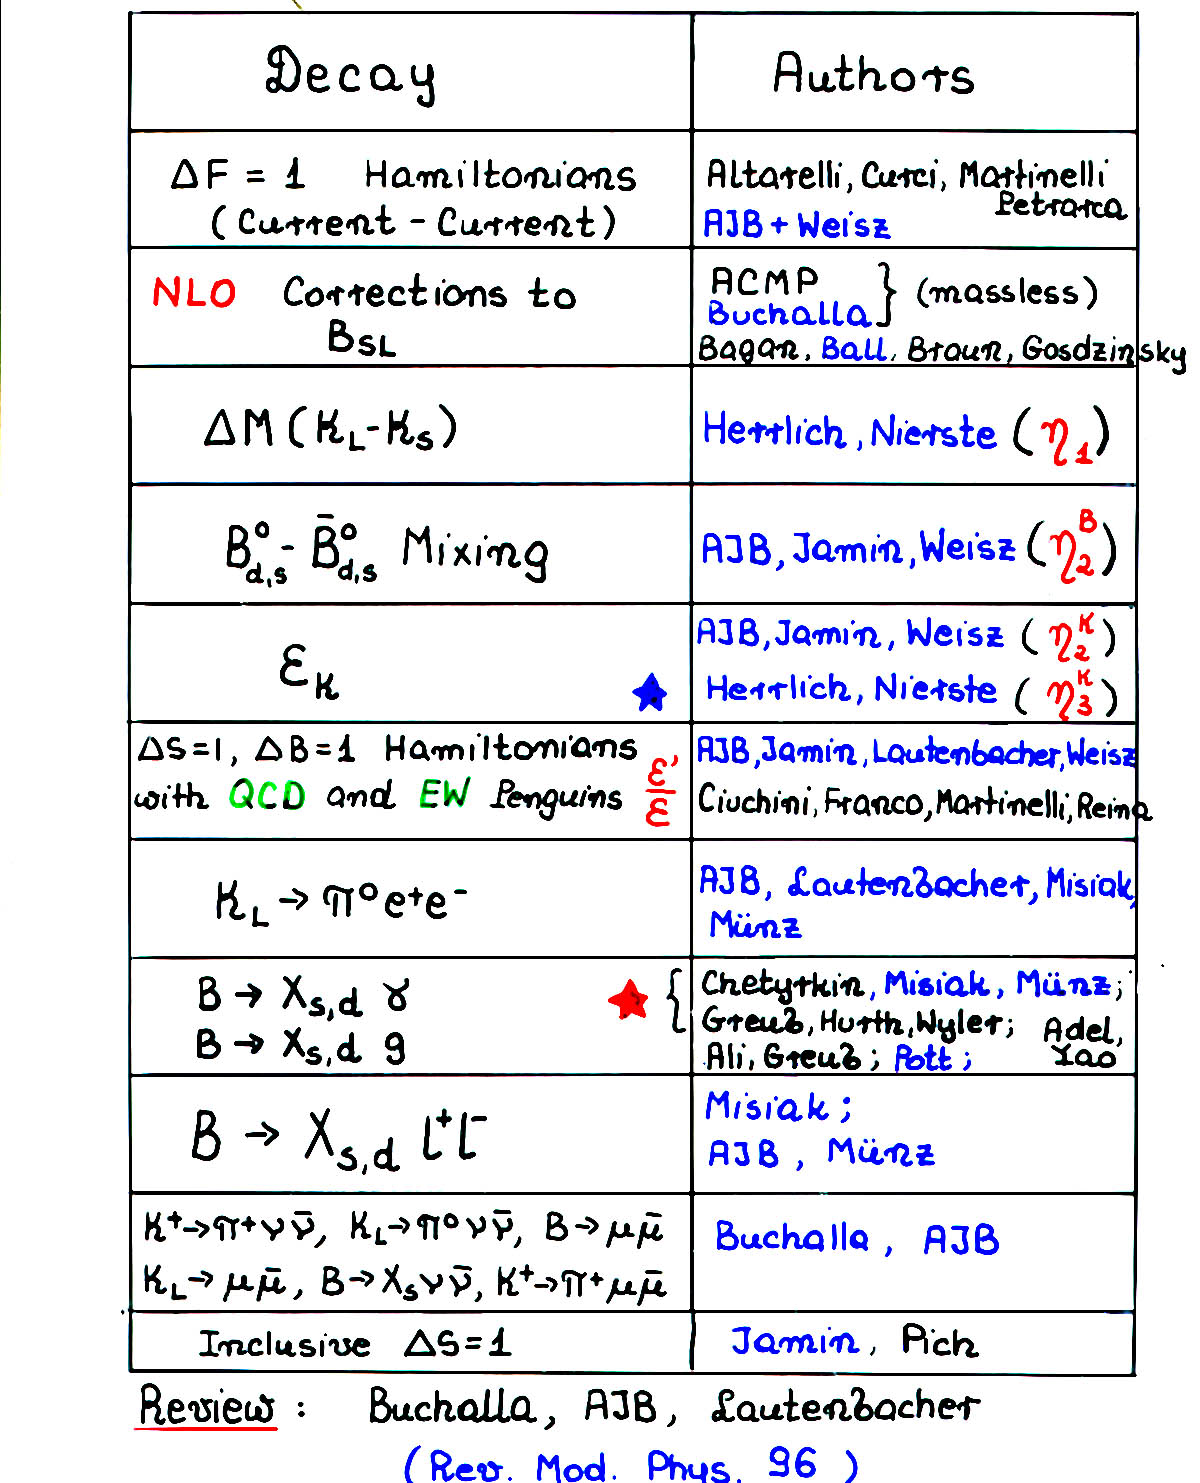 Decay
Authors
ΔF = 1 Hamiltonians
(Current - Current)
Altarelli, Curci, Martinelli
Petrarca
AJB + Weisz
NLO Corrections to
B_SL
ACMP
Buchalla } (massless)
Bagan, Ball, Braun, Gosdzinsky
ΔM (K_L - K_S)
Herrlich, Nierste (η_1)
B⁰_d,s - B̄⁰_d,s Mixing
AJB, Jamin, Weisz (η_2^B)
ε_K
AJB, Jamin, Weisz (η_2^K)
Herrlich, Nierste (η_3^K)
ΔS=1, ΔB=1 Hamiltonians
with QCD and EW Penguins ε'/ε
AJB, Jamin, Lautenbacher, Weisz
Ciuchini, Franco, Martinelli, Reina
K_L → π⁰e⁺e⁻
AJB, Lautenbacher, Misiak,
Münz
B → X_s,d γ
B → X_s,d g
Chetyrkin, Misiak, Münz;
Greub, Hurth, Wyler; Adel,
Ali, Greub; Pott; Yao
B → X_s,d l⁺l⁻
Misiak;
AJB, Münz
K⁺→π⁺νν̄, K_L→π⁰νν̄, B→μμ̄
K_L→μμ̄, B→X_sνν̄, K⁺→π⁺μμ̄
Buchalla, AJB
Inclusive ΔS=1
Jamin, Pich
Review: Buchalla, AJB, Lautenbacher
(Rev. Mod. Phys. 96)